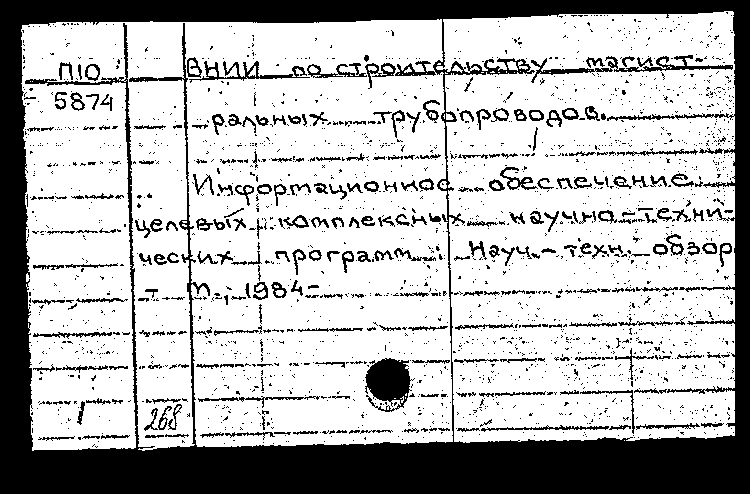 П10 ВНИИ по строительству магист-
5874 ральных трубопроводов.
Информационное обеспечение
целевых комплексных научно-техни-
ческих программ : Науч.-техн. обзор
- М., 1984-
1 268